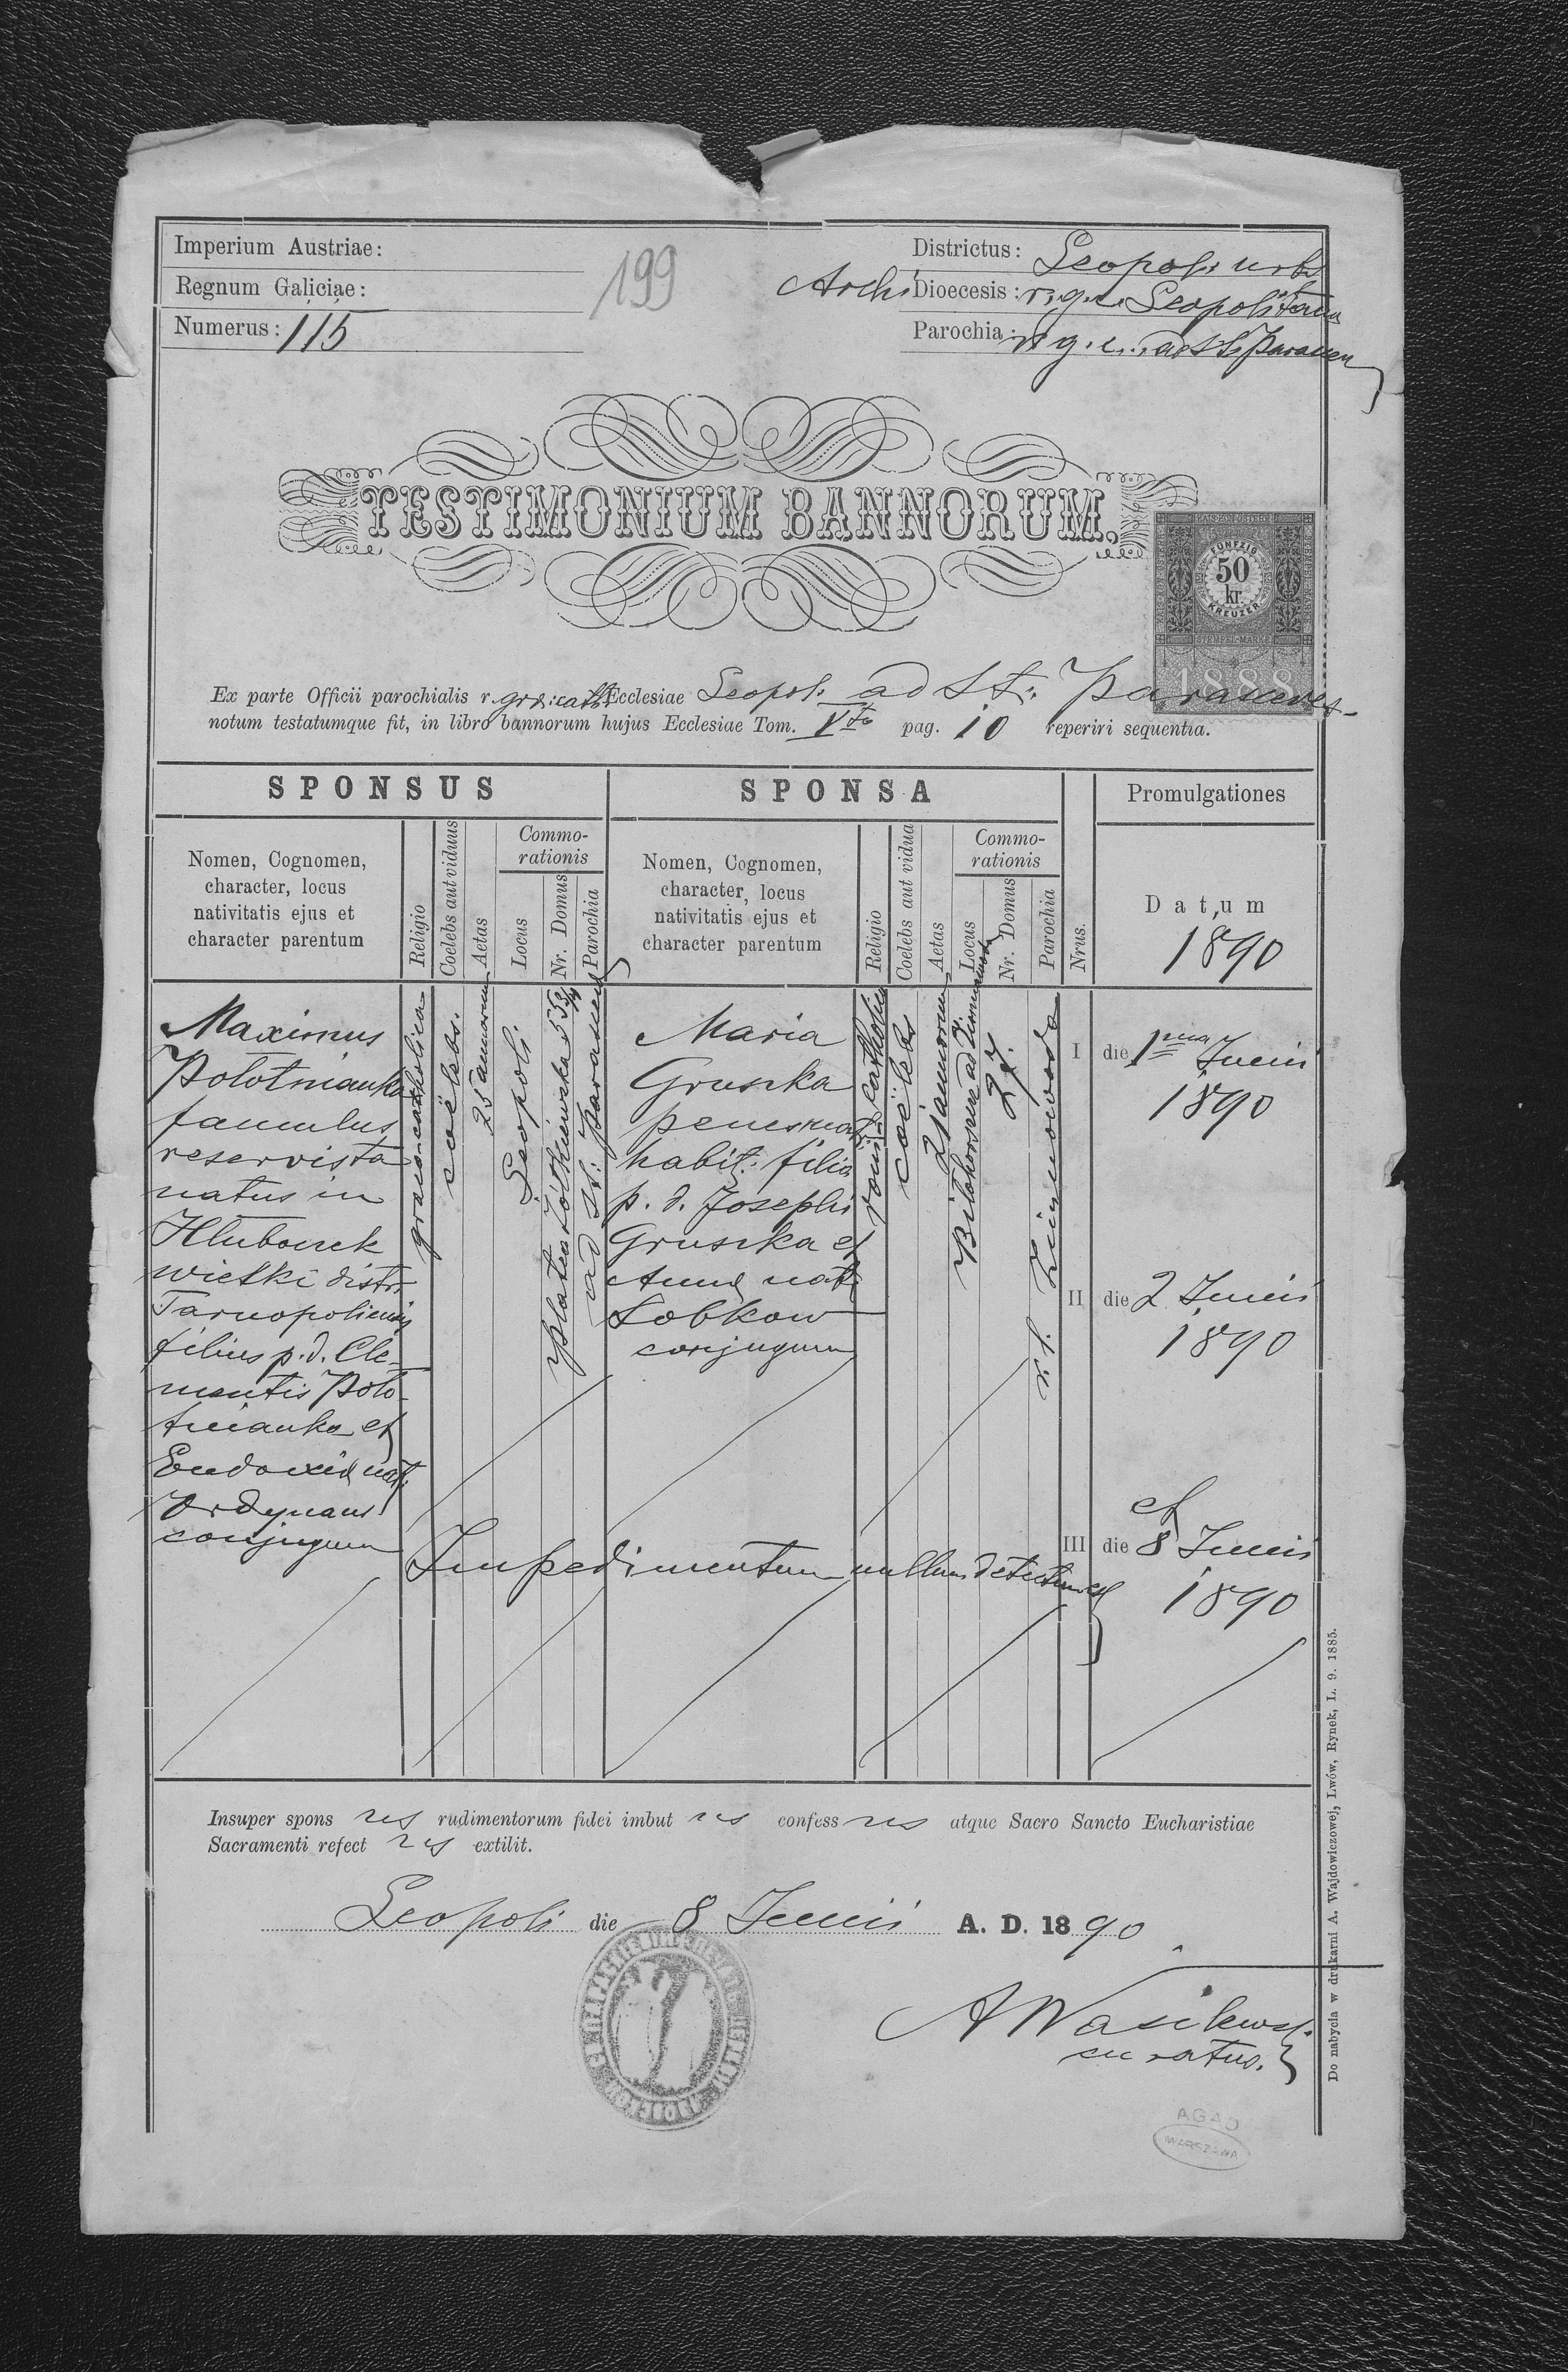 Imperium Austriae:
Regnum Galiciae:
Numerus: 115
199
Districtus: Leopoli urbs
Archi Dioecesis: r. g. c. Leopolitana
Parochia: r. g. c. ad St. Parascev
TESTIMONIUM BANNORUM.
FÜNFZIG
50
kr.
KREUZER
STEMPEL-MARKE
1888
Ex parte Officii parochialis r. gr. cath. Ecclesiae Leopol. ad St. Parasceves
notum testatumque fit, in libro bannorum hujus Ecclesiae Tom. V to pag. 10 reperiri sequentia.
SPONSUS
SPONSA
Promulgationes
Nomen, Cognomen,
character, locus
nativitatis ejus et
character parentum
Religio
Coelebs aut viduus
Aetas
Commo-
rationis
Locus
Nr. Domus
Parochia
Nomen, Cognomen,
character, locus
nativitatis ejus et
character parentum
Religio
Coelebs aut vidua
Aetas
Commo-
rationis
Locus
Nr. Domus
Parochia
Nrus.
Datum
1890
Maximus
Polotnianka
famulus
reservista
natus in
Hluboczek
wielki distr.
Tarnopoliensis
filius p. d. Cle-
mentis Polo-
tnianka et
Eudoxiae nat.
Ordynans
conjugum
graeco-catholica
coëlebs.
25 annorum
Leopoli
platea Żółkiewska 53/4
ad St. Parascev
Maria
Gruszka
penes mat.
habit. filia
p. d. Josephi
Gruszka et
Annae nat.
Sobkow
conjugum
rom. catholica
coëlebs
21 annorum
Bilohorszcze ad Zimnawoda
27.
r. l. Zimnowoda
I die 1ma Junii
1890
II die 2 Junii
1890
et
III die 8 Junii
1890
Impedimentum nullum detectum est
Insuper spons us rudimentorum fidei imbut us confess us atque Sacro Sancto Eucharistiae
Sacramenti refect us extitit.
Leopoli die 8 Junii A. D. 1890
curatus.
AGAD
WARSZAWA
Do nabycia w drukarni A. Wajdowiczowej, Lwów, Rynek, L. 9. 1885.